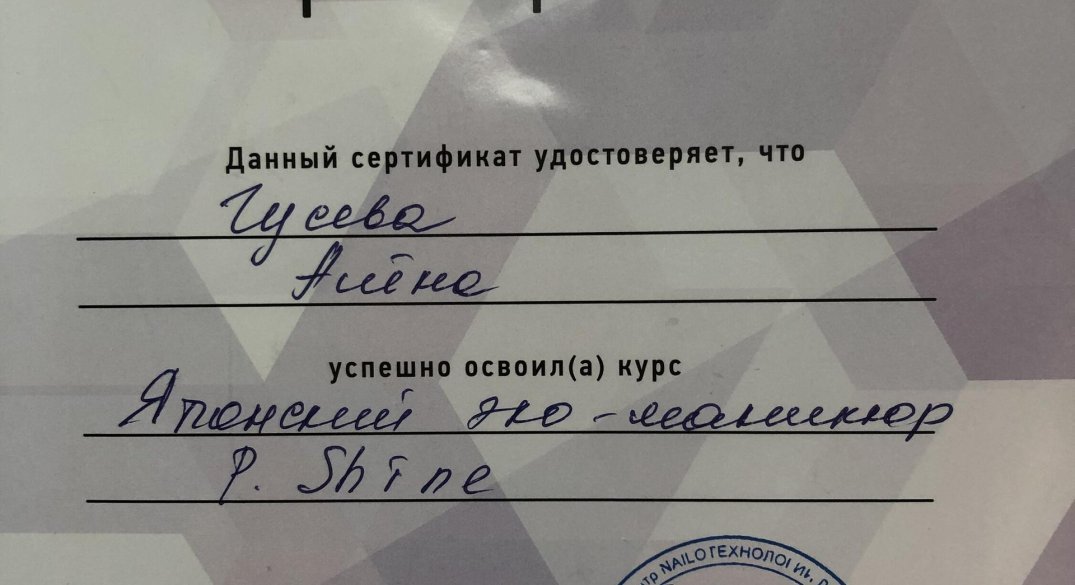 Данный сертификат удостоверяет, что
Гусева
Алёна
успешно освоил(а) курс
Японский эко-маникюр
P. Shine
NAILOТЕХНОЛОГИИ